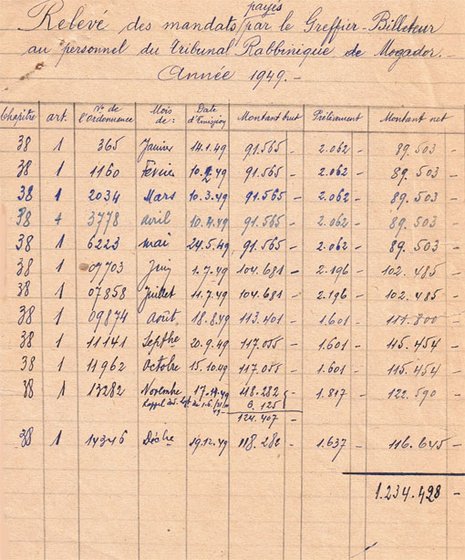 Relevé des mandats payés par le Greffier-Billeteur
au personnel du Tribunal Rabbinique de Mogador.
Année 1949.-
Chapitre art. N° de l'ordonnance Mois de: Date d'Emission Montant brut Prélèvement Montant net
38 1 365 Janvier 14.1.49 91.565 - 2.062 - 89.503 -
38 1 1160 Février 10.2.49 91.565 - 2.062 - 89.503 -
38 1 2034 Mars 10.3.49 91.565 - 2.062 - 89.503 -
38 1 3778 avril 10.4.49 91.565 - 2.062 - 89.503 -
38 1 6223 mai 24.5.49 91.565 - 2.062 - 89.503 -
38 1 07703 Juin 1.7.49 104.681 - 2.196 - 102.485 -
38 1 07858 Juillet 11.7.49 104.681 - 2.196 - 102.485 -
38 1 09874 août 18.8.49 113.401 - 1.601 - 111.800 -
38 1 11141 Septbre 20.9.49 117.055 - 1.601 - 115.454 -
38 1 11962 Octobre 15.10.49 117.055 - 1.601 - 115.454 -
38 1 13282 Novembre 17.11.49 118.282 - 1.817 - 122.590 -
Rappel 6.125
124.407 -
38 1 14346 Décbre 19.12.49 118.282 - 1.637 - 116.645 -
1.234.428 -